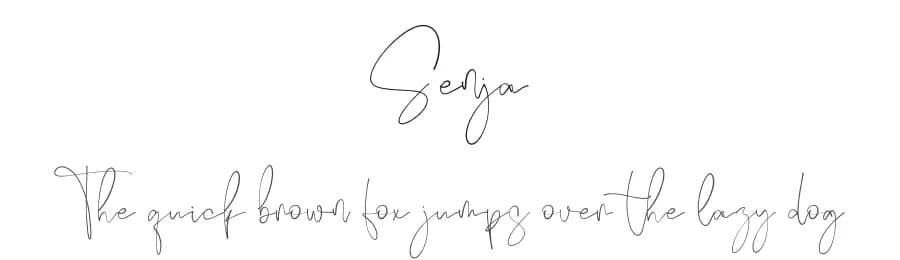 Senja
The quick brown fox jumps over the lazy dog